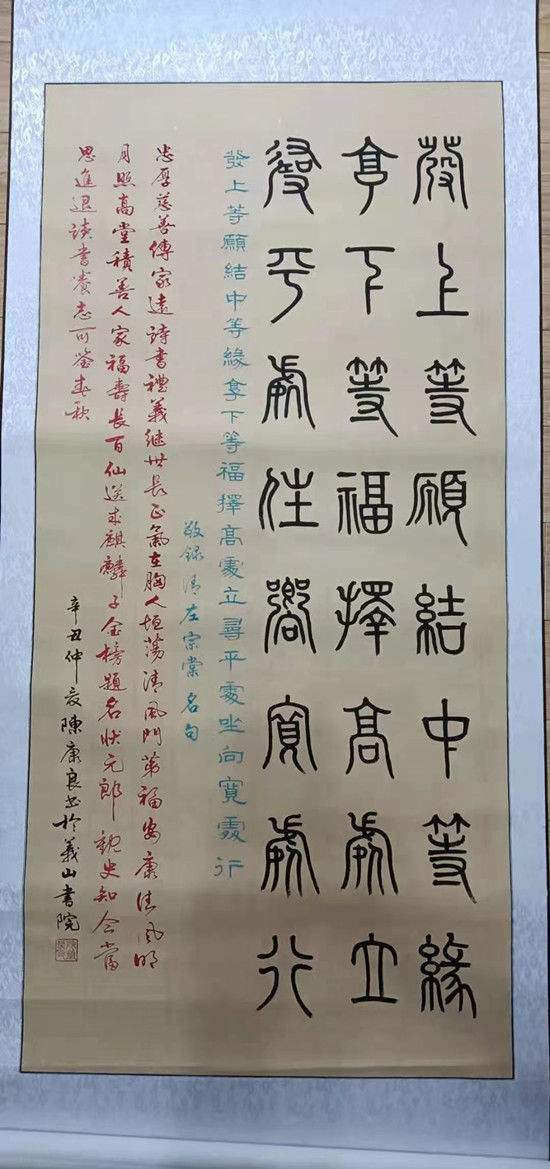 發上等願結中等緣
享下等福擇高處立
尋平處住嚮寬處行
發上等願結中等緣享下等福擇高處立尋平處坐向寬處行
敬錄清左宗棠名句
忠厚慈善傳家遠詩書禮義繼世長正氣在胸人坦蕩清風門第福安康清風明
月照高堂積善人家福壽長百仙送來麒麟子金榜題名狀元郎觀史知今當
思進退讀書養志可鑒春秋
辛丑仲夏陳康良書於義山書院